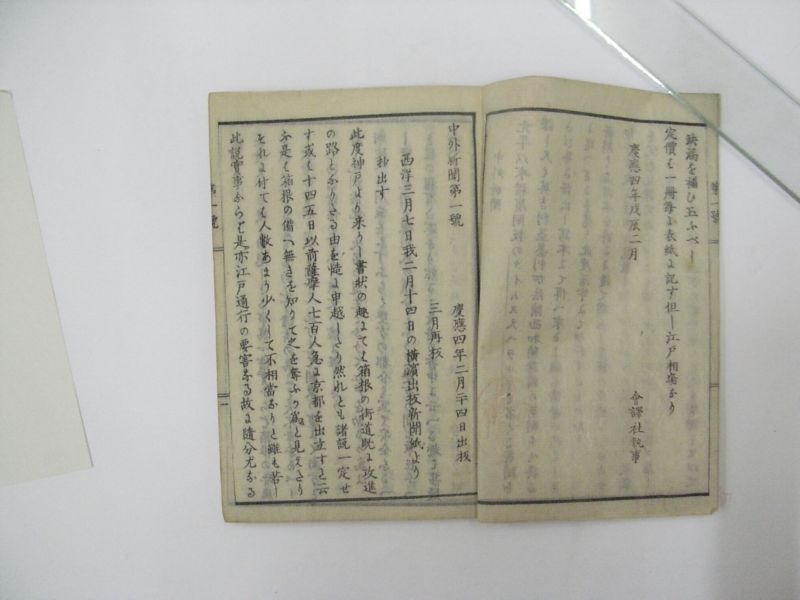 缺漏を補ひ玉ふべし
定價も一冊每に表紙に記す但し江戶相場なり
慶應四年戊辰二月
會譯社執事
中外新聞第一號
慶應四年二月二十四日出板
三月再板
西洋三月七日我二月十四日の橫濱出板新聞紙より
抄出す
此度神戶より來りし書狀の趣にても箱根の街道既に攻進
の路となりたる由を慥に申越したり然れとも諸說一定せ
す或も十四五日以前薩摩人七百人急に京都を出立すと云
ふ是も箱根の備へ無きを知りて之を奪ふの爲と見えたり
それに付ても人數あまり少くして不相當なりと雖も若し
此說實事ならは是亦江戶通行の要害なる故に隨分尤なる
第一號